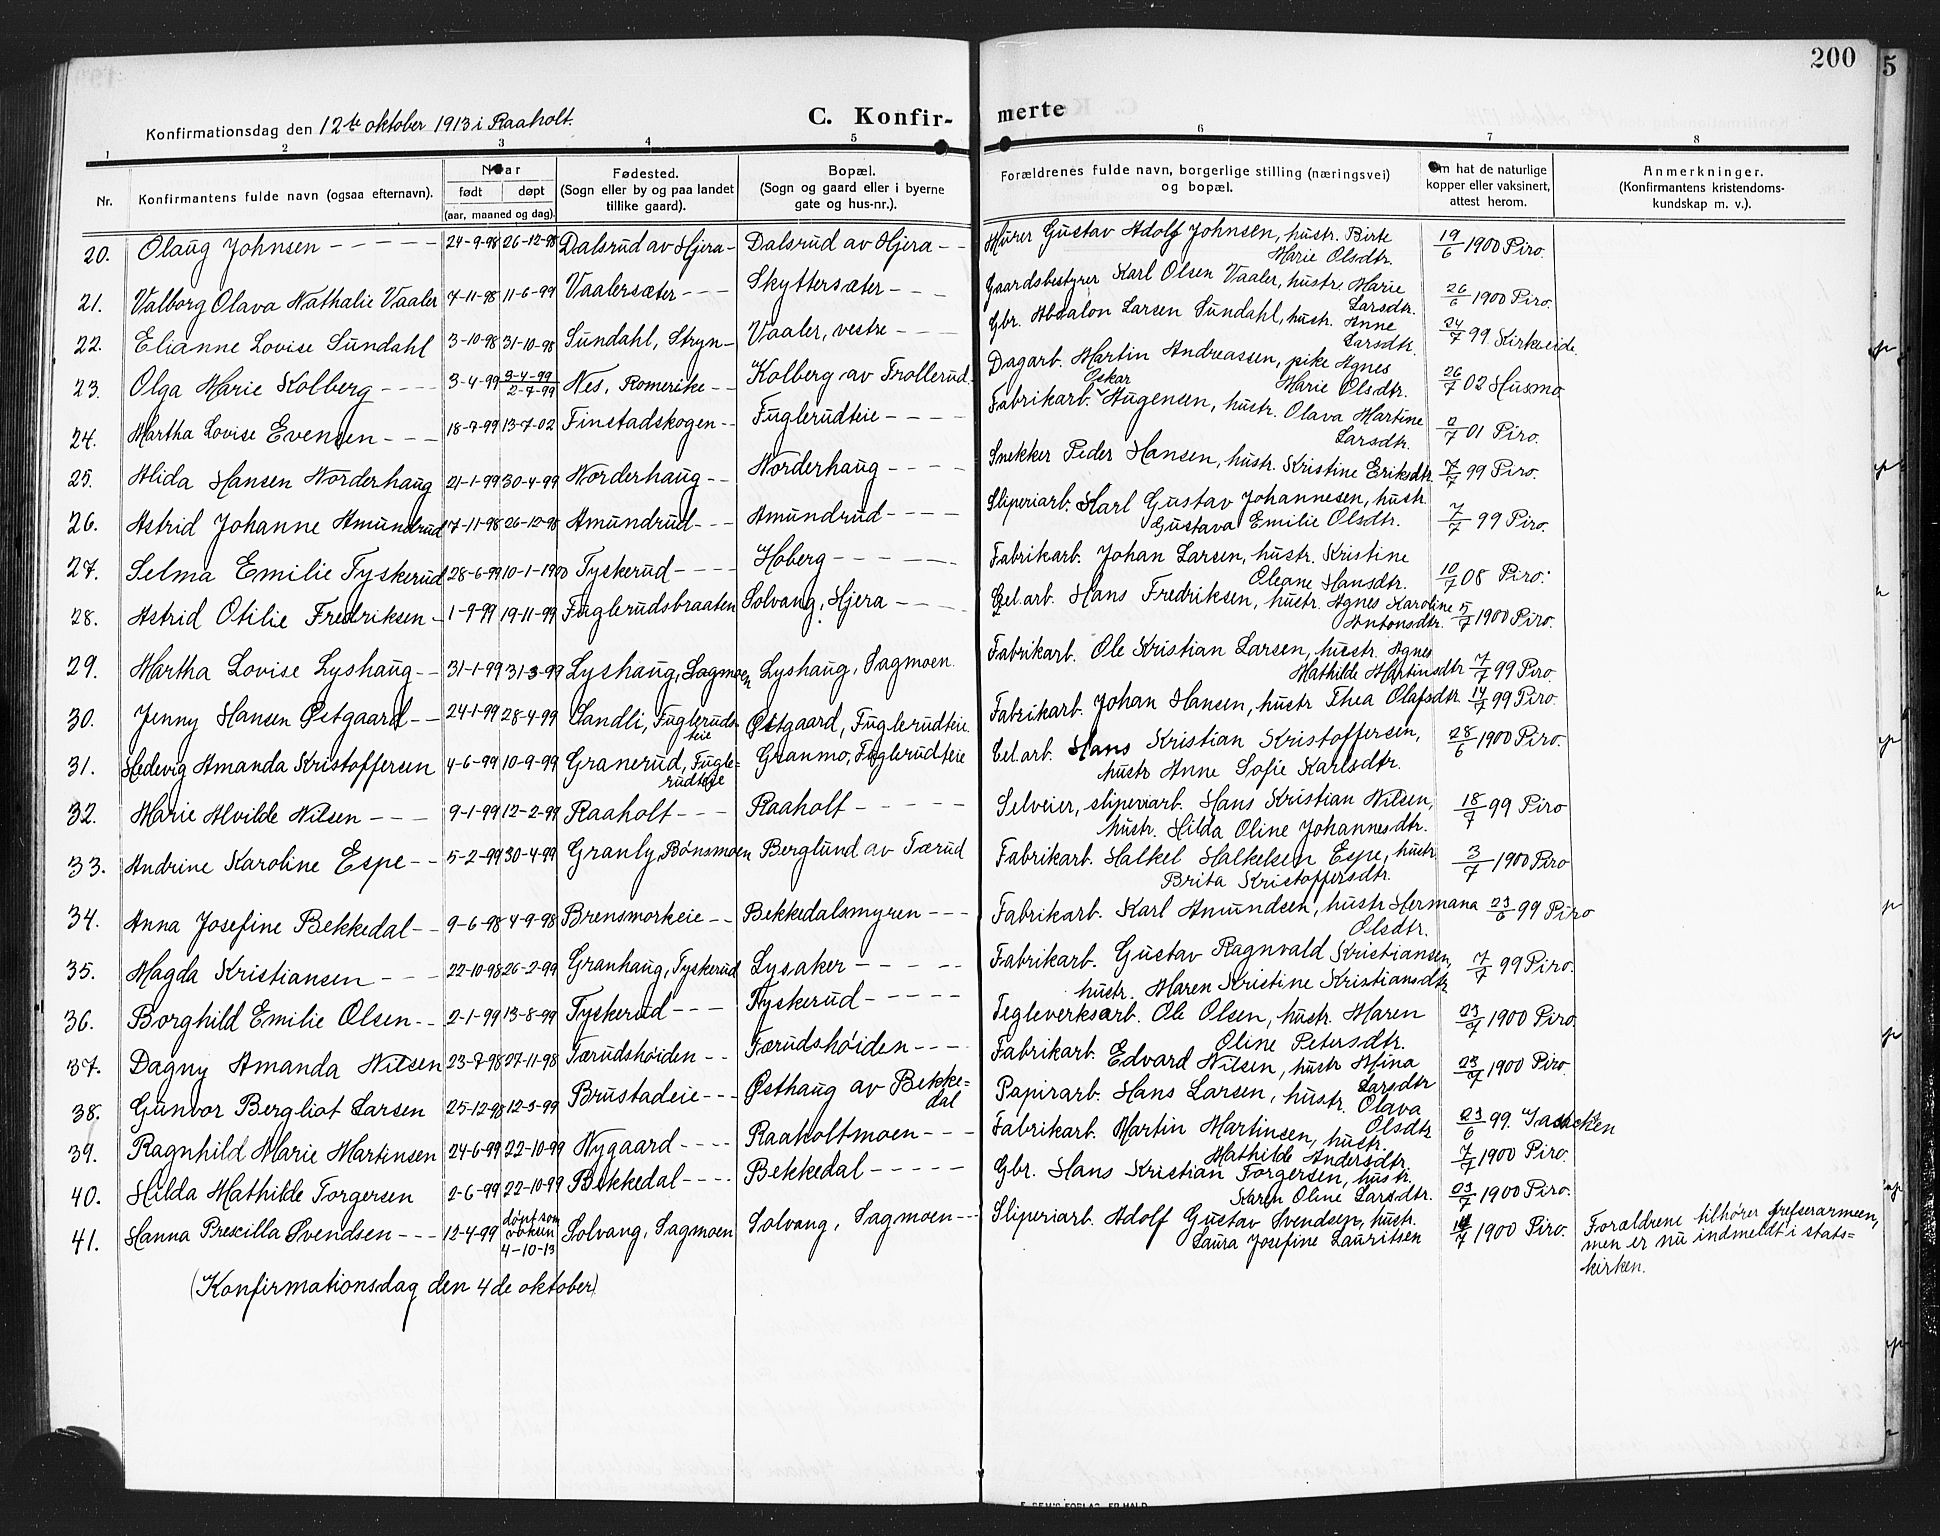 200
5
Konfirmationsdag den 12te oktober 1913 i Raaholt.
C. Konfir-
merte
1 2 3 4 5 6 7 8
Nr.
Konfirmantens fulde navn (ogsaa efternavn).
Naar
født døpt
(aar, maaned og dag).
Fødested.
(Sogn eller by og paa landet
tillike gaard).
Bopæl.
(Sogn og gaard eller i byerne
gate og hus-nr.).
Forældrenes fulde navn, borgerlige stilling (næringsvei)
og bopæl.
Om hat de naturlige
kopper eller vaksinert,
attest herom.
Anmerkninger.
(Konfirmantens kristendoms-
kundskap m. v.).
20. Olaug Johnsen 24-9-98 26-12-98 Dalsrud av Hjera Dalsrud av Hjera Murer Gustav Adolf Johnsen, hustr. Birte
Marie Olsdtr. 19/6 1900 Piro.
21. Valborg Olava Nathalie Vaaler 7-11-98 11-6-99 Vaalersæter Skyttersæter Gaardsbestyrer Karl Olsen Vaaler, hustr. Marie
Larsdtr. 26/6 1900 Piro.
22. Elianne Lovise Sundahl 3-10-98 31-10-98 Sundahl, Stryn Vaaler, vestre Gbr. Absalon Larsen Sundahl, hustr. Anne
Larsdtr. 24/7 99 Kirkeeide
23. Olga Marie Kolberg 3-4-99 3-4-99 / 2-7-99 Nes, Romerike Kolberg av Trollerud Dagarb. Martin Andreassen, pike Agnes
Marie Olsdtr. 26/7 02 Husmo
24. Martha Lovise Evensen 18-9-99 13-7-02 Finstadskogen Fuglerudteie Fabrikarb. Oskar Haugensen, hustr. Olava Martine
Larsdtr. 2/7 01 Piro.
25. Alida Hansen Norderhaug 21-1-99 30-4-99 Norderhaug Norderhaug Snekker Peder Hansen, hustr. Kristine Eriksdtr. 7/7 99 Piro.
26. Astrid Johanne Amundrud 7-11-98 26-12-98 Amundrud Amundrud Sliperiarb. Karl Gustav Johannesen, hustr.
Gustava Emilie Olsdtr. 7/7 99 Piro.
27. Selma Emilie Tyskerud 28-6-99 10-1-1900 Tyskerud Hoberg Fabrikarb. Johan Larsen, hustr. Kristine
Oleane Hansdtr. 10/7 08 Piro.
28. Astrid Otilie Fredriksen 1-9-99 19-11-99 Fuglerudsbraaten Solvang, Hjera Cel.arb. Hans Fredriksen, hustr. Agnes Karoline
Antonsdtr. 5/7 1900 Piro.
29. Martha Lovise Lyshaug 31-1-99 31-3-99 Lyshaug, Sagmoen Lyshaug, Sagmoen. Fabrikarb. Ole Kristian Larsen, hustr. Agnes
Mathilde Martinsdtr 7/7 99 Piro.
30. Jenny Hansen Østgaard 24-1-99 28-4-99 Sandli, Fuglerudsteie Østgaard, Fuglerudteie. Fabrikarb. Johan Hansen, hustr Thea Olafsdtr. 14/7 99 Piro.
31. Hedevig Amanda Kristoffersen 4-6-99 10-9-99 Granerud, Fugle=
rudteie Granmo, Fuglerudteie Cel.arb. Hans Kristian Kristoffersen,
hustr Anne Sofie Karlsdtr. 28/6 1900 Piro.
32. Marie Alvilde Nilsen 9-1-99 12-2-99 Raaholt Raaholt Selveier, sliperiarb. Hans Kristian Nilsen,
hustr. Hilda Oline Johannesdtr. 18/7 99 Piro
33. Andrine Karoline Espe 5-2-99 30-4-99 Granly, Bønsmoen Berglund av Færud Fabrikarb. Halkel Halkelsen Espe, hustr
Brita Kristoffersdtr. 3/7 1900 Piro
34. Anna Josefine Bekkedal 9-6-98 4-9-98 Brensmorkeie Bekkedalsmyren Fabrikarb. Karl Amundsen, hustr Hermana
Olsdtr. 23/6 99 Piro
35. Magda Kristiansen 22-10-98 26-2-99 Granhaug, Tyskerud Lysaker Fabrikarb. Gustav Ragnvald Kristiansen,
hustr. Maren Kristine Kristiansdtr 7/7 99 Piro.
36. Borghild Emilie Olsen 2-1-99 13-8-99 Tyskerud Tyskerud Tegleverksarb. Ole Olsen, hustr. Maren
Oline Petersdtr. 23/7 1900 Piro.
37. Dagny Amanda Nilsen 23-7-98 27-11-98 Færudshøiden Færudshøiden Fabrikarb. Edvard Nilsen, hustr Mina
Larsdtr 23/7 1900 Piro.
38. Gunvor Bergliot Larsen 25-12-98 12-3-99 Brustadeie Østhaug av Bekke=
dal Papirarb. Hans Larsen, hustr. Olava
Olsdtr 23/6 99.
39. Ragnhild Marie Martinsen 24-6-99 22-10-99 Nygaard Raaholtmoen Fabrikarb. Martin Martinsen, hustr.
Mathilde Andersdtr. 7/7 1900 Piro.
40. Hilda Mathilde Torgersen 2-6-99 22-10-99 Bekkedal Bekkedal Gbr. Hans Kristian Torgersen, hustr.
Karen Oline Larsdtr. 23/7 1900 Piro.
41. Hanna Prescilla Svendsen 12-4-99 døpt som
voksen
4-10-13 Solvang, Sagmoen Solvang, Sagmoen Sliperiarb. Adolf Gustav Svendsen, hustr.
Laura Josefine Lauritsen 14/7 1900 Piro. Forældrene tilhører frelserarmeen,
men er nu indmeldt i stats=
kirken.
(Konfirmationsdag den 4de oktober)